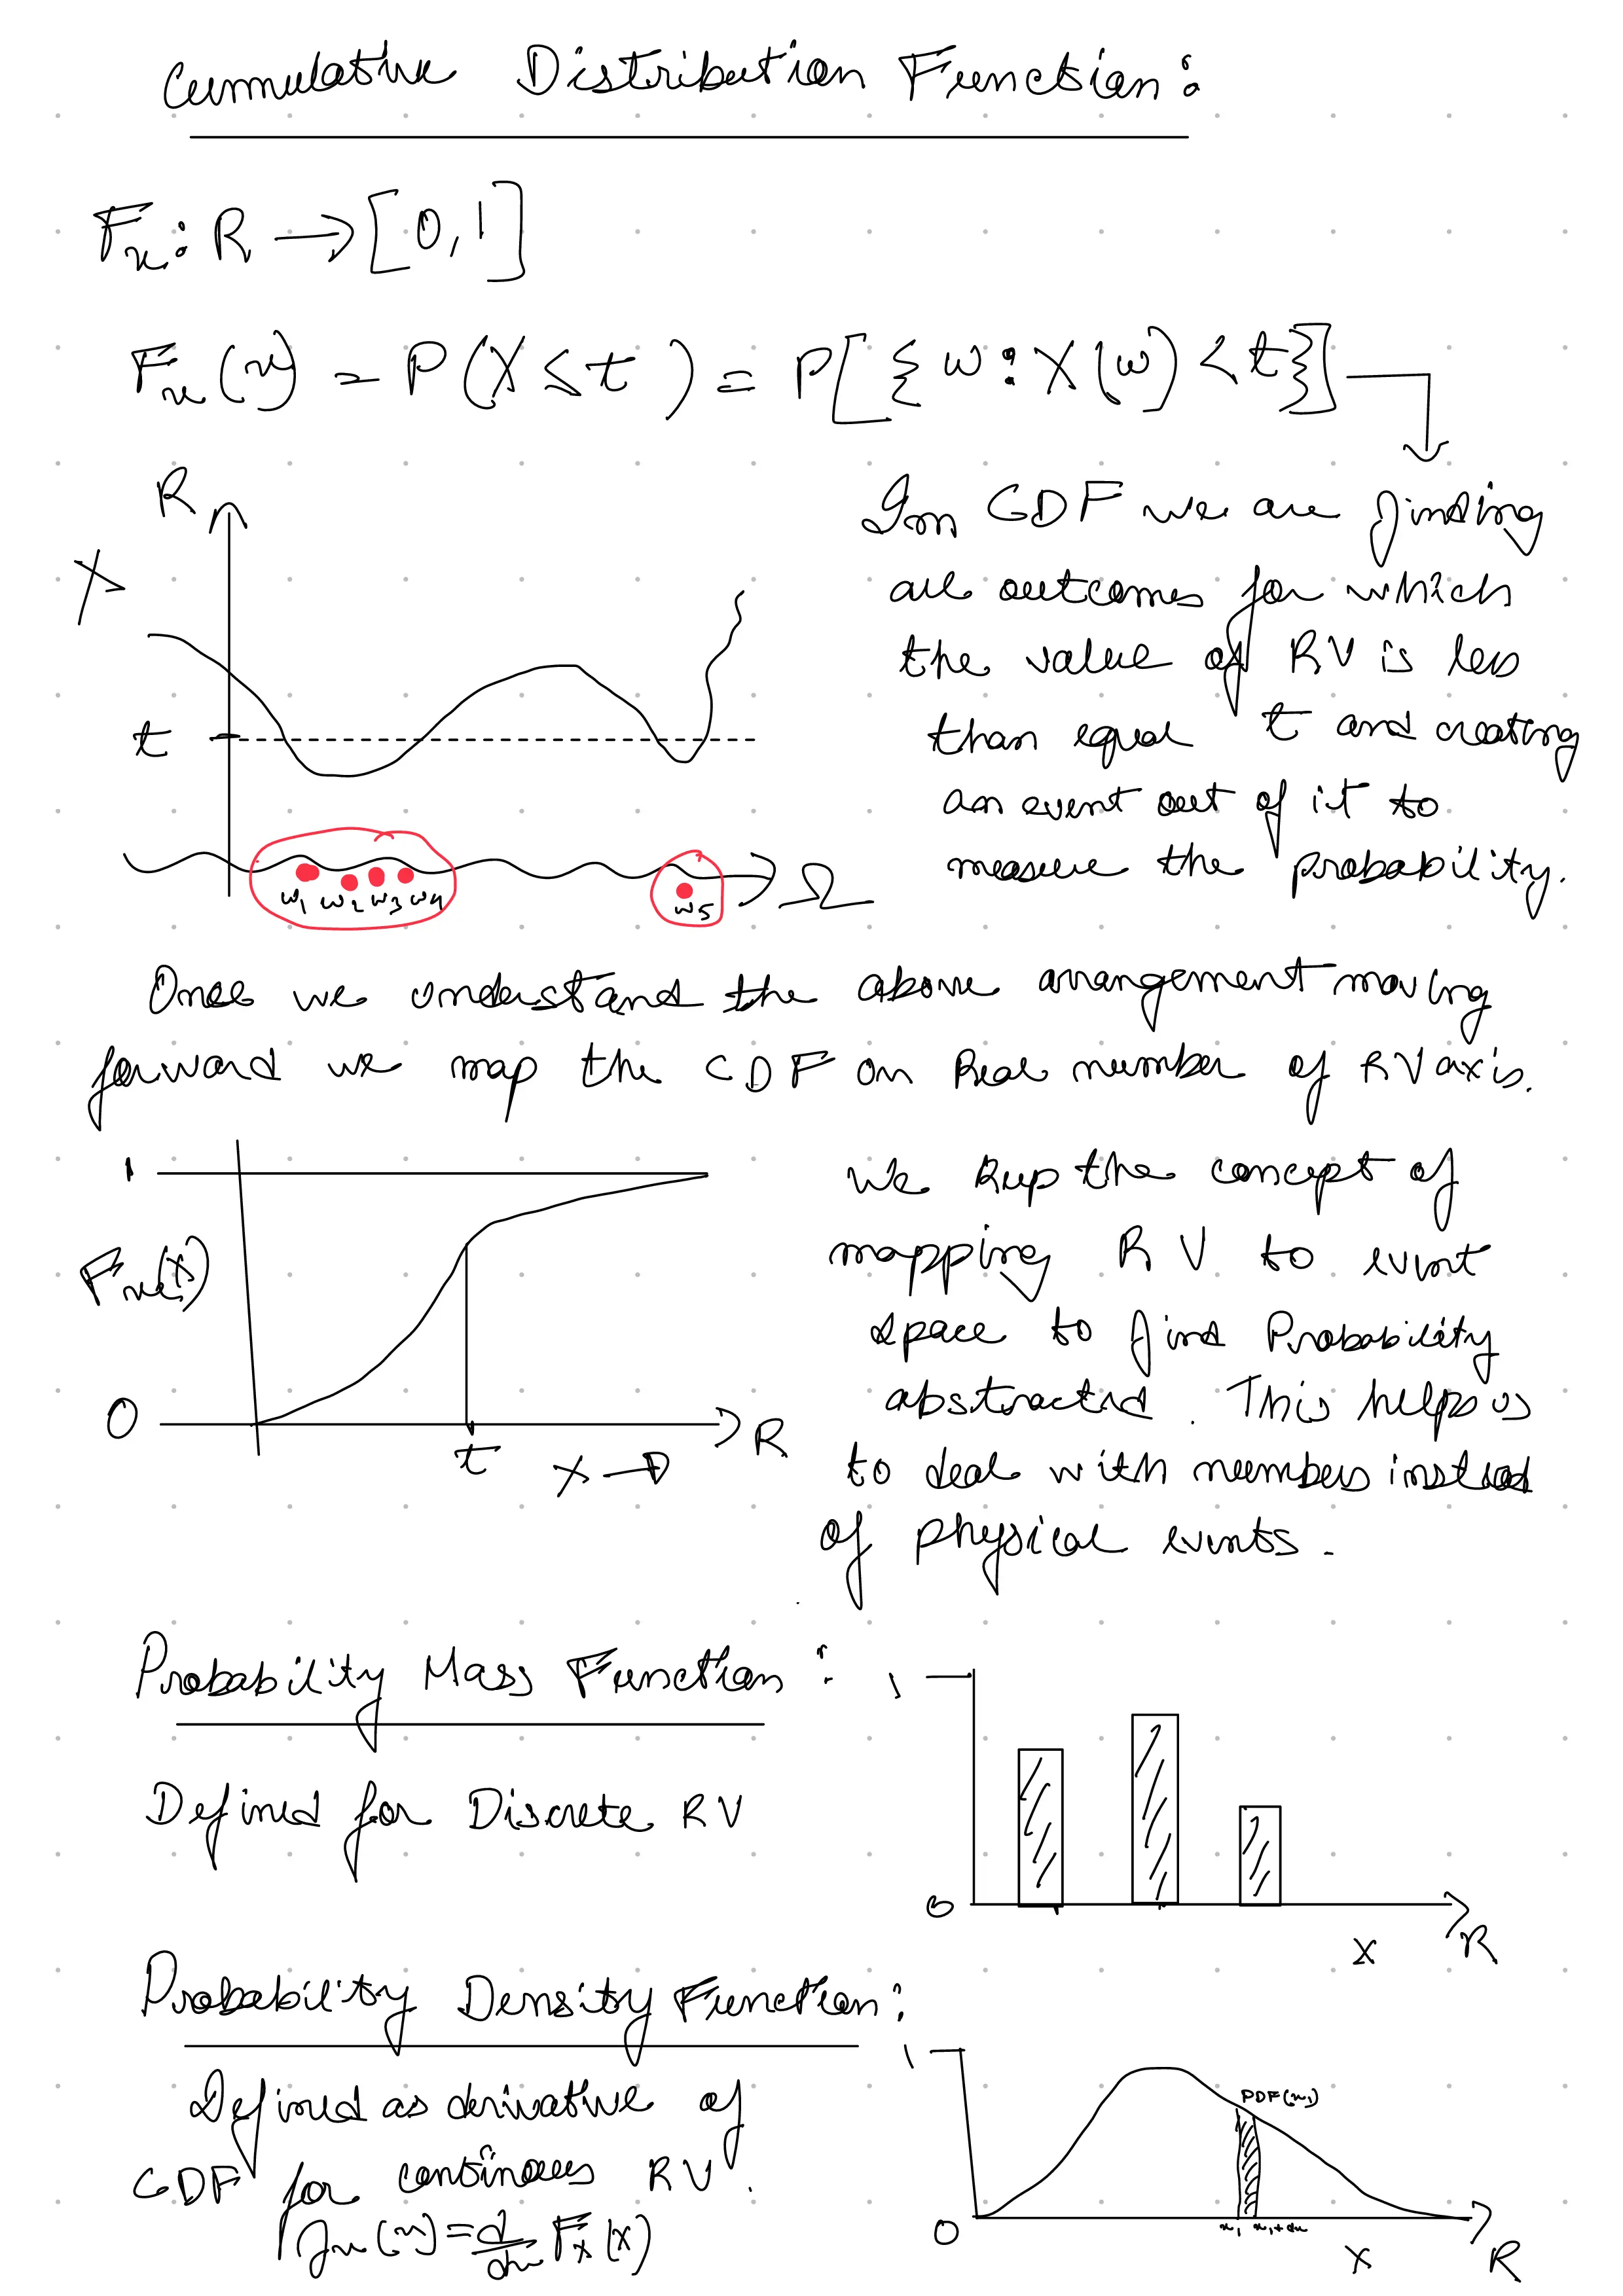 Cummulative Distribution Function:
Fx: R → [0,1]
Fx(x) = P(X ≤ t) = P[{ω : X(ω) < t}]
R
X
t
ω1 ω2 ω3 ω4
ω5
Ω
Im CDF we are finding
all outcomes for which
the value of RV is less
than equal t and creating
an event out of it to
measure the probability.
Once we understand the above arrangement moving
forward we map the CDF on Real number of RV axis.
1
Fx(x)
0
t
X →
R
We keep the concept of
mapping RV to event
space to find Probability
abstracted. This helps us
to deal with numbers instead
of physical events.
Probability Mass Function:
Defined for Discrete RV
1
0
X
R
Probability Density Function:
Defined as derivative of
CDF for continoues RV.
fx(x) = d/dx Fx(x)
1
PDF(x1)
0
x1 x1+dx
X
R